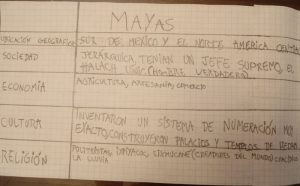 MAYAS
UBICACIÓN GEOGRÁFICA SUR DE MEXICO Y EL NORTE AMERICA CENTRAL
SOCIEDAD JERÁRQUICA, TENIAN UN JEFE SUPREMO, EL
HALACH UINIC (HOMBRE VERDADERO)
ECONOMÍA AGRICULTURA, ARTESANÍA, COMERCIO
CULTURA INVENTARON UN SISTEMA DE NUMERACIÓN MUY
EXACTO, CONSTRUYERON PALACIOS Y TEMPLOS DE PIEDRA
RELIGIÓN POLITEÍSTAS (CREADORES DEL MUNDO)
LA LLUVIA